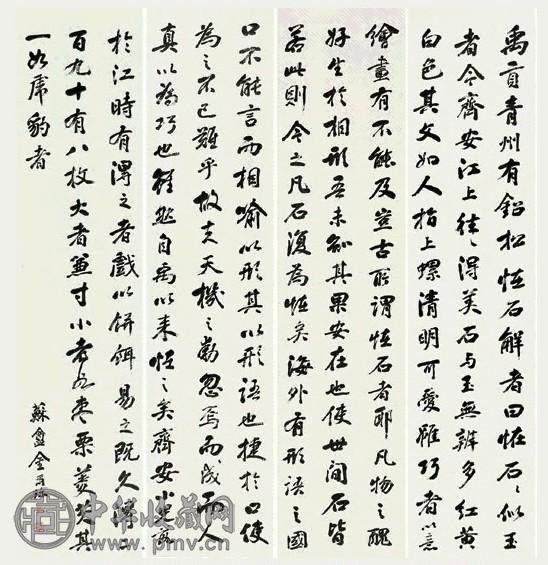 禹貢青州有鉛松怪石解者曰怪石々似玉
者今齊安江上往々得美石與玉無辨多紅黄
白色其文如人指上螺清明可愛雖巧者以意
繪畫有不能及豈古所謂怪石者耶凡物之醜
好生於相形吾未知其果安在也使世間石皆
若此則今之凡石復為怪矣海外有形語之國
口不能言而相喻以形其以形語也捷於口使
為之不已難乎故夫天機之動忽焉而成而人
真以為巧也雖然自禹以来怪之矣齊安小兒浴
於江時有得之者戲以餅餌易之既久得二
百九十有八枚大者兼寸小者如棗栗菱芡其
一如虎豹者
蘇盦金
中华收藏网
www.pmv.cn